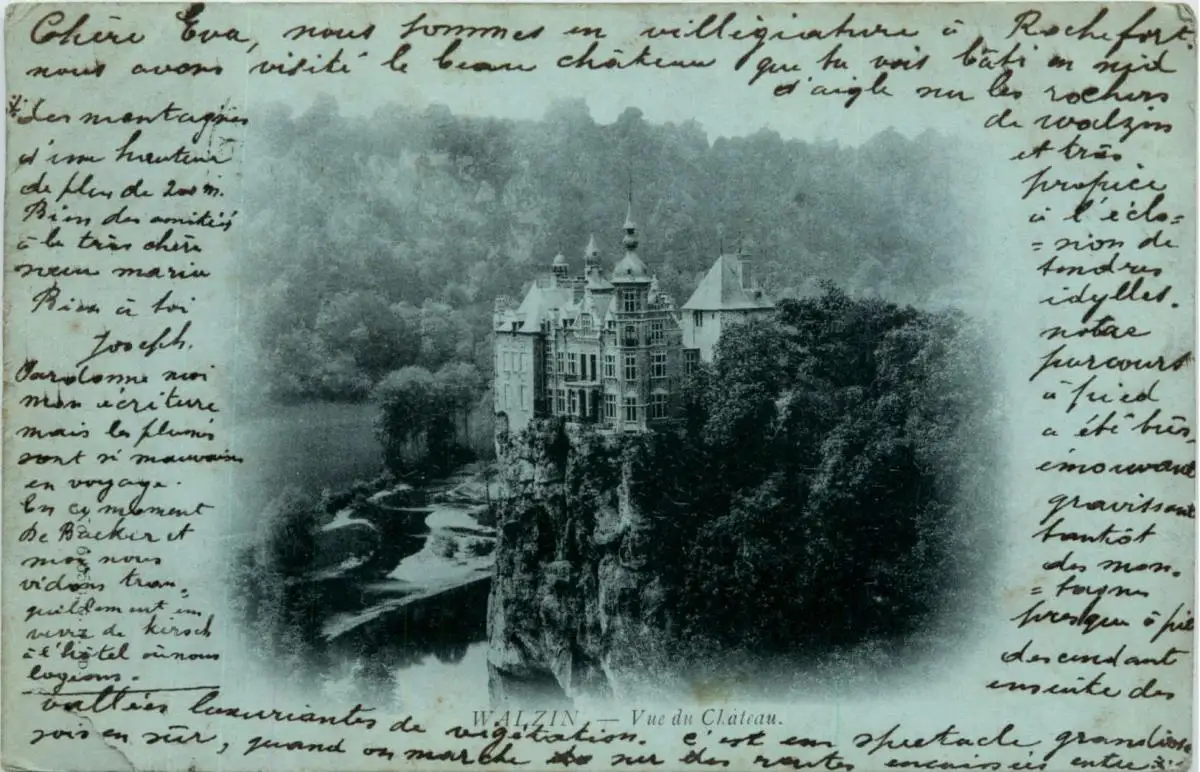 Chère Eva, nous sommes en villégiature à Rochefort.
nous avons visité le beau château que tu vois bâti en nid
d'aigle sur les rochers
de walzin
et très
propice
à l'éclo-
=sion de
tendres
idylles.
notre
parcours
à pied
a été très
émouvant
gravissant
tantôt
des mon-
=tagnes
presqu'à pic
descendant
ensuite des
vallées luxuriantes de végétation. C'est un spectacle grandiose
sois en sûr, quand on marche sur des routes encaissées entre
des montagnes
d'une hauteur
de plus de 200 m.
Bien des amitiés
à la très chère
sœur maria
Bien à toi
Joseph.
Pardonne moi
mon écriture
mais les plumes
sont si mauvaises
en voyage.
En ce moment
De Backer et
moi nous
vidons tran=
quillement un
verre de kirsch
à l'hôtel où nous
logeons.
WALZIN. — Vue du Château.